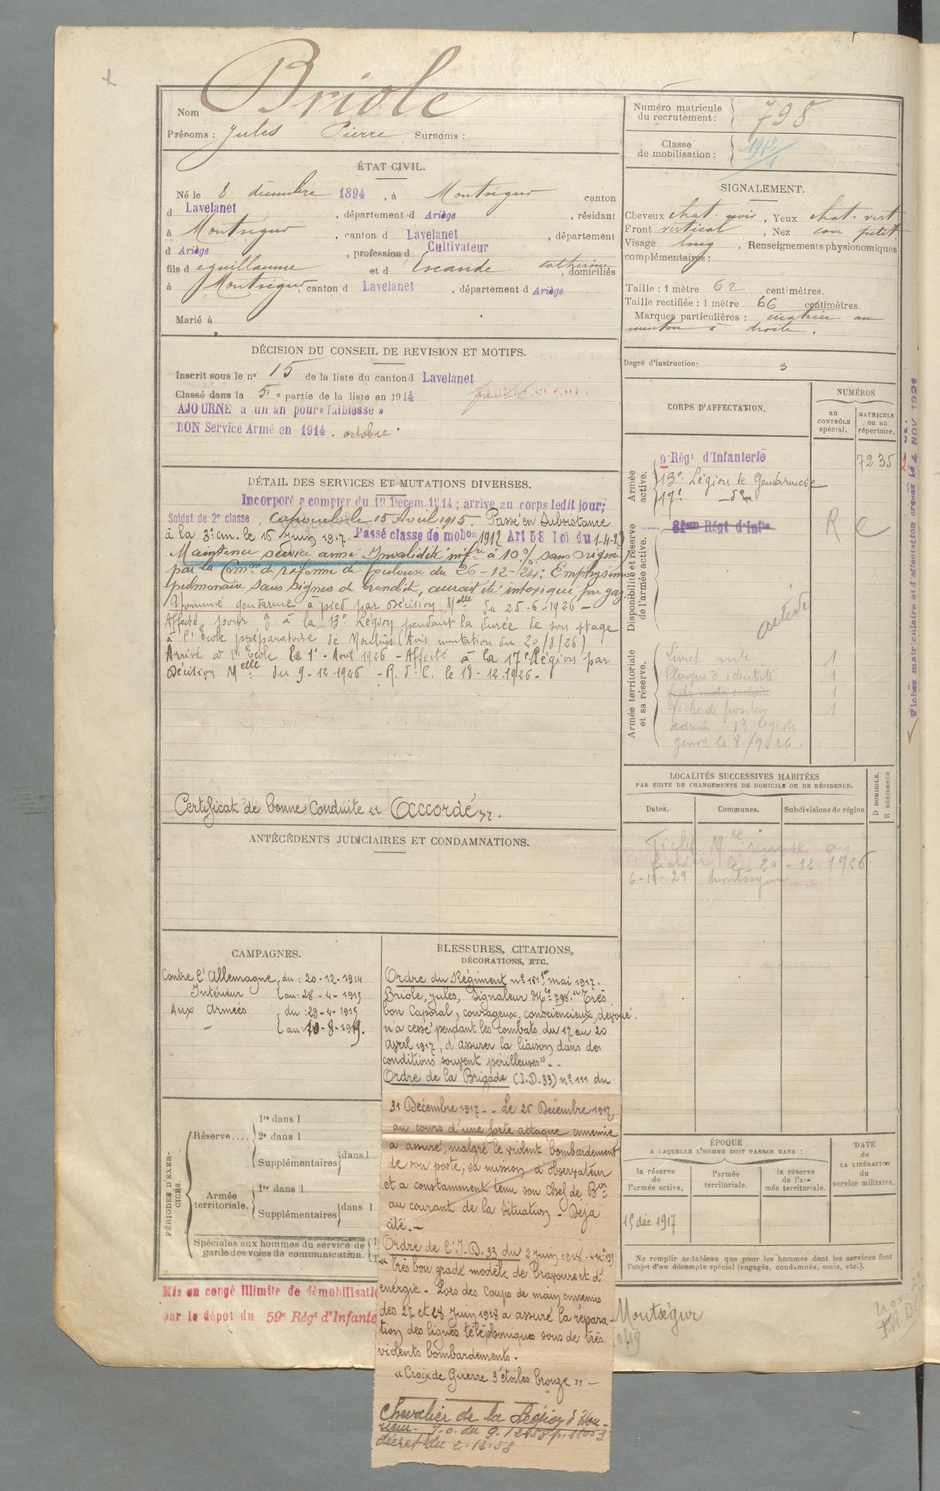 Nom Briole
Prénoms : Jules Pierre Surnoms :
ÉTAT CIVIL.
Né le 8 décembre 1894, à Montségur canton
d Lavelanet, département d Ariège, résidant
à Montségur, canton d Lavelanet, département
d Ariège, profession d Cultivateur
fils d Guillaume et d Escande Catherine, domiciliés
à Montségur, canton d Lavelanet, département d Ariège
Marié à
DÉCISION DU CONSEIL DE REVISION ET MOTIFS.
Inscrit sous le nº 15 de la liste du canton d Lavelanet
Classé dans la 5e partie de la liste en 1914
AJOURNÉ à un an pour « faiblesse »
BON Service Armé en 1914. octobre.
DÉTAIL DES SERVICES ET MUTATIONS DIVERSES.
Incorporé à compter du 19 Décem. 1914 ; arrivé au corps ledit jour;
Soldat de 2e classe, caporal le 15 Avril 1915. Passé en Subsistance
à la 3e le 16 Juin 1917. Passé classe de mobon 1912 Art 58 Loi du 1-4-2
Maintenu service armé Invalidité infre à 10% sans
par la Comon de réforme de Toulouse du 26-12-24: Emphysème
pulmonaire sans signes de bronchite, aurait été intoxiqué par gaz.
Nommé gendarme à pied par Décision Mlle du 25-6-1926 -
Affecté pour à la 13e Légion pendant la durée de son stage
à l'École préparatoire de Moulins (Avis mutation du 20/8/26)
Arrivé à l'École le 1er Août 1926 - Affecté à la 17e Légion par
Décision Melle du 9-12-1926 - R. d. C. le 18-12-1926 -
Certificat de bonne Conduite « Accordé ».
ANTÉCÉDENTS JUDICIAIRES ET CONDAMNATIONS.
CAMPAGNES.
Contre l'Allemagne, du : 20-12-1914
Intérieur au : 28-4-1915
Aux Armées du : 29-4-1915
au : 10-8-1919.
BLESSURES, CITATIONS,
DÉCORATIONS, ETC.
Ordre du Régiment nº 151 mai 1917.
Briole, Jules, Signaleur Mle 798. "Très
bon Caporal, courageux, consciencieux, dévoué.
n'a cessé pendant les combats du 17 au 20
Avril 1917, d'assurer la liaison dans des
conditions souvent périlleuses".
Ordre de la Brigade (I.D. 33) nº 111 du
31 Décembre 1917 - Le 25 Décembre 1917
au cours d'une forte attaque ennemie
a assuré, malgré le violent bombardement
de son poste, sa mission d'observateur
et a constamment tenu son Chef de Bon
au courant de la situation - Déjà
cité. -
Ordre de l'I.D. 33 du 2 Juin 1918
"Très bon gradé modèle de bravoure et d'
énergie - Lors des Coups de main ennemis
des 27 et 28 Juin 1918 a assuré la répara-
tion des lignes téléphoniques sous de très
violents bombardements.
« Croix de Guerre 3 étoiles bronze » -
Chevalier de la Légion d'Hon-
neur. J.O. du 9.12.58
décret du 2-12-58
PÉRIODES D'EXERCICES.
Réserve....
1re dans l
2e dans l
Supplémentaires dans l
Armée territoriale.
1re dans l
Supplémentaires dans l
Spéciales aux hommes du service de
garde des voies de communication.
Mis en congé illimité de démobilisation
par le dépôt du 59e Régt d'Infanterie
Montségur
Numéro matricule
du recrutement : 798
Classe
de mobilisation :
SIGNALEMENT.
Cheveux chat. noir, Yeux chat. vert
Front vertical, Nez cave petit
Visage long, Renseignements physionomiques
complémentaires :
Taille : 1 mètre 62 centimètres.
Taille rectifiée : 1 mètre 66 centimètres.
Marques particulières : cicatrice au
menton à droite.
Degré d'instruction : 3
CORPS D'AFFECTATION.
NUMÉROS
au CONTRÔLE spécial.
MATRICULE ou au répertoire.
Armée active.
9e Régt d'Infanterie 7235
13e Légion de Gendarmerie
17e — do —
Disponibilité et réserve de l'armée active.
Régt d'Infie
R C
Armée territoriale et sa réserve.
Livret 1
Plaque d'identité 1
1
1
13 Leg. de
gend. le 8/9.26.
LOCALITÉS SUCCESSIVES HABITÉES
PAR SUITE DE CHANGEMENTS DE DOMICILE OU DE RÉSIDENCE.
Dates. Communes. Subdivisions de région
D DOMICILE. R RÉSIDENCE
le 20-12-1926
Montségur
ÉPOQUE
A LAQUELLE L'HOMME DOIT PASSER DANS :
la réserve de l'armée active.
l'armée territoriale.
la réserve de l'armée territoriale.
DATE DE LA LIBÉRATION du service militaire.
15 déc. 1917
Ne remplir ce tableau que pour les hommes dont les services font
l'objet d'un décompte spécial (engagés, condamnés, omis, etc.).